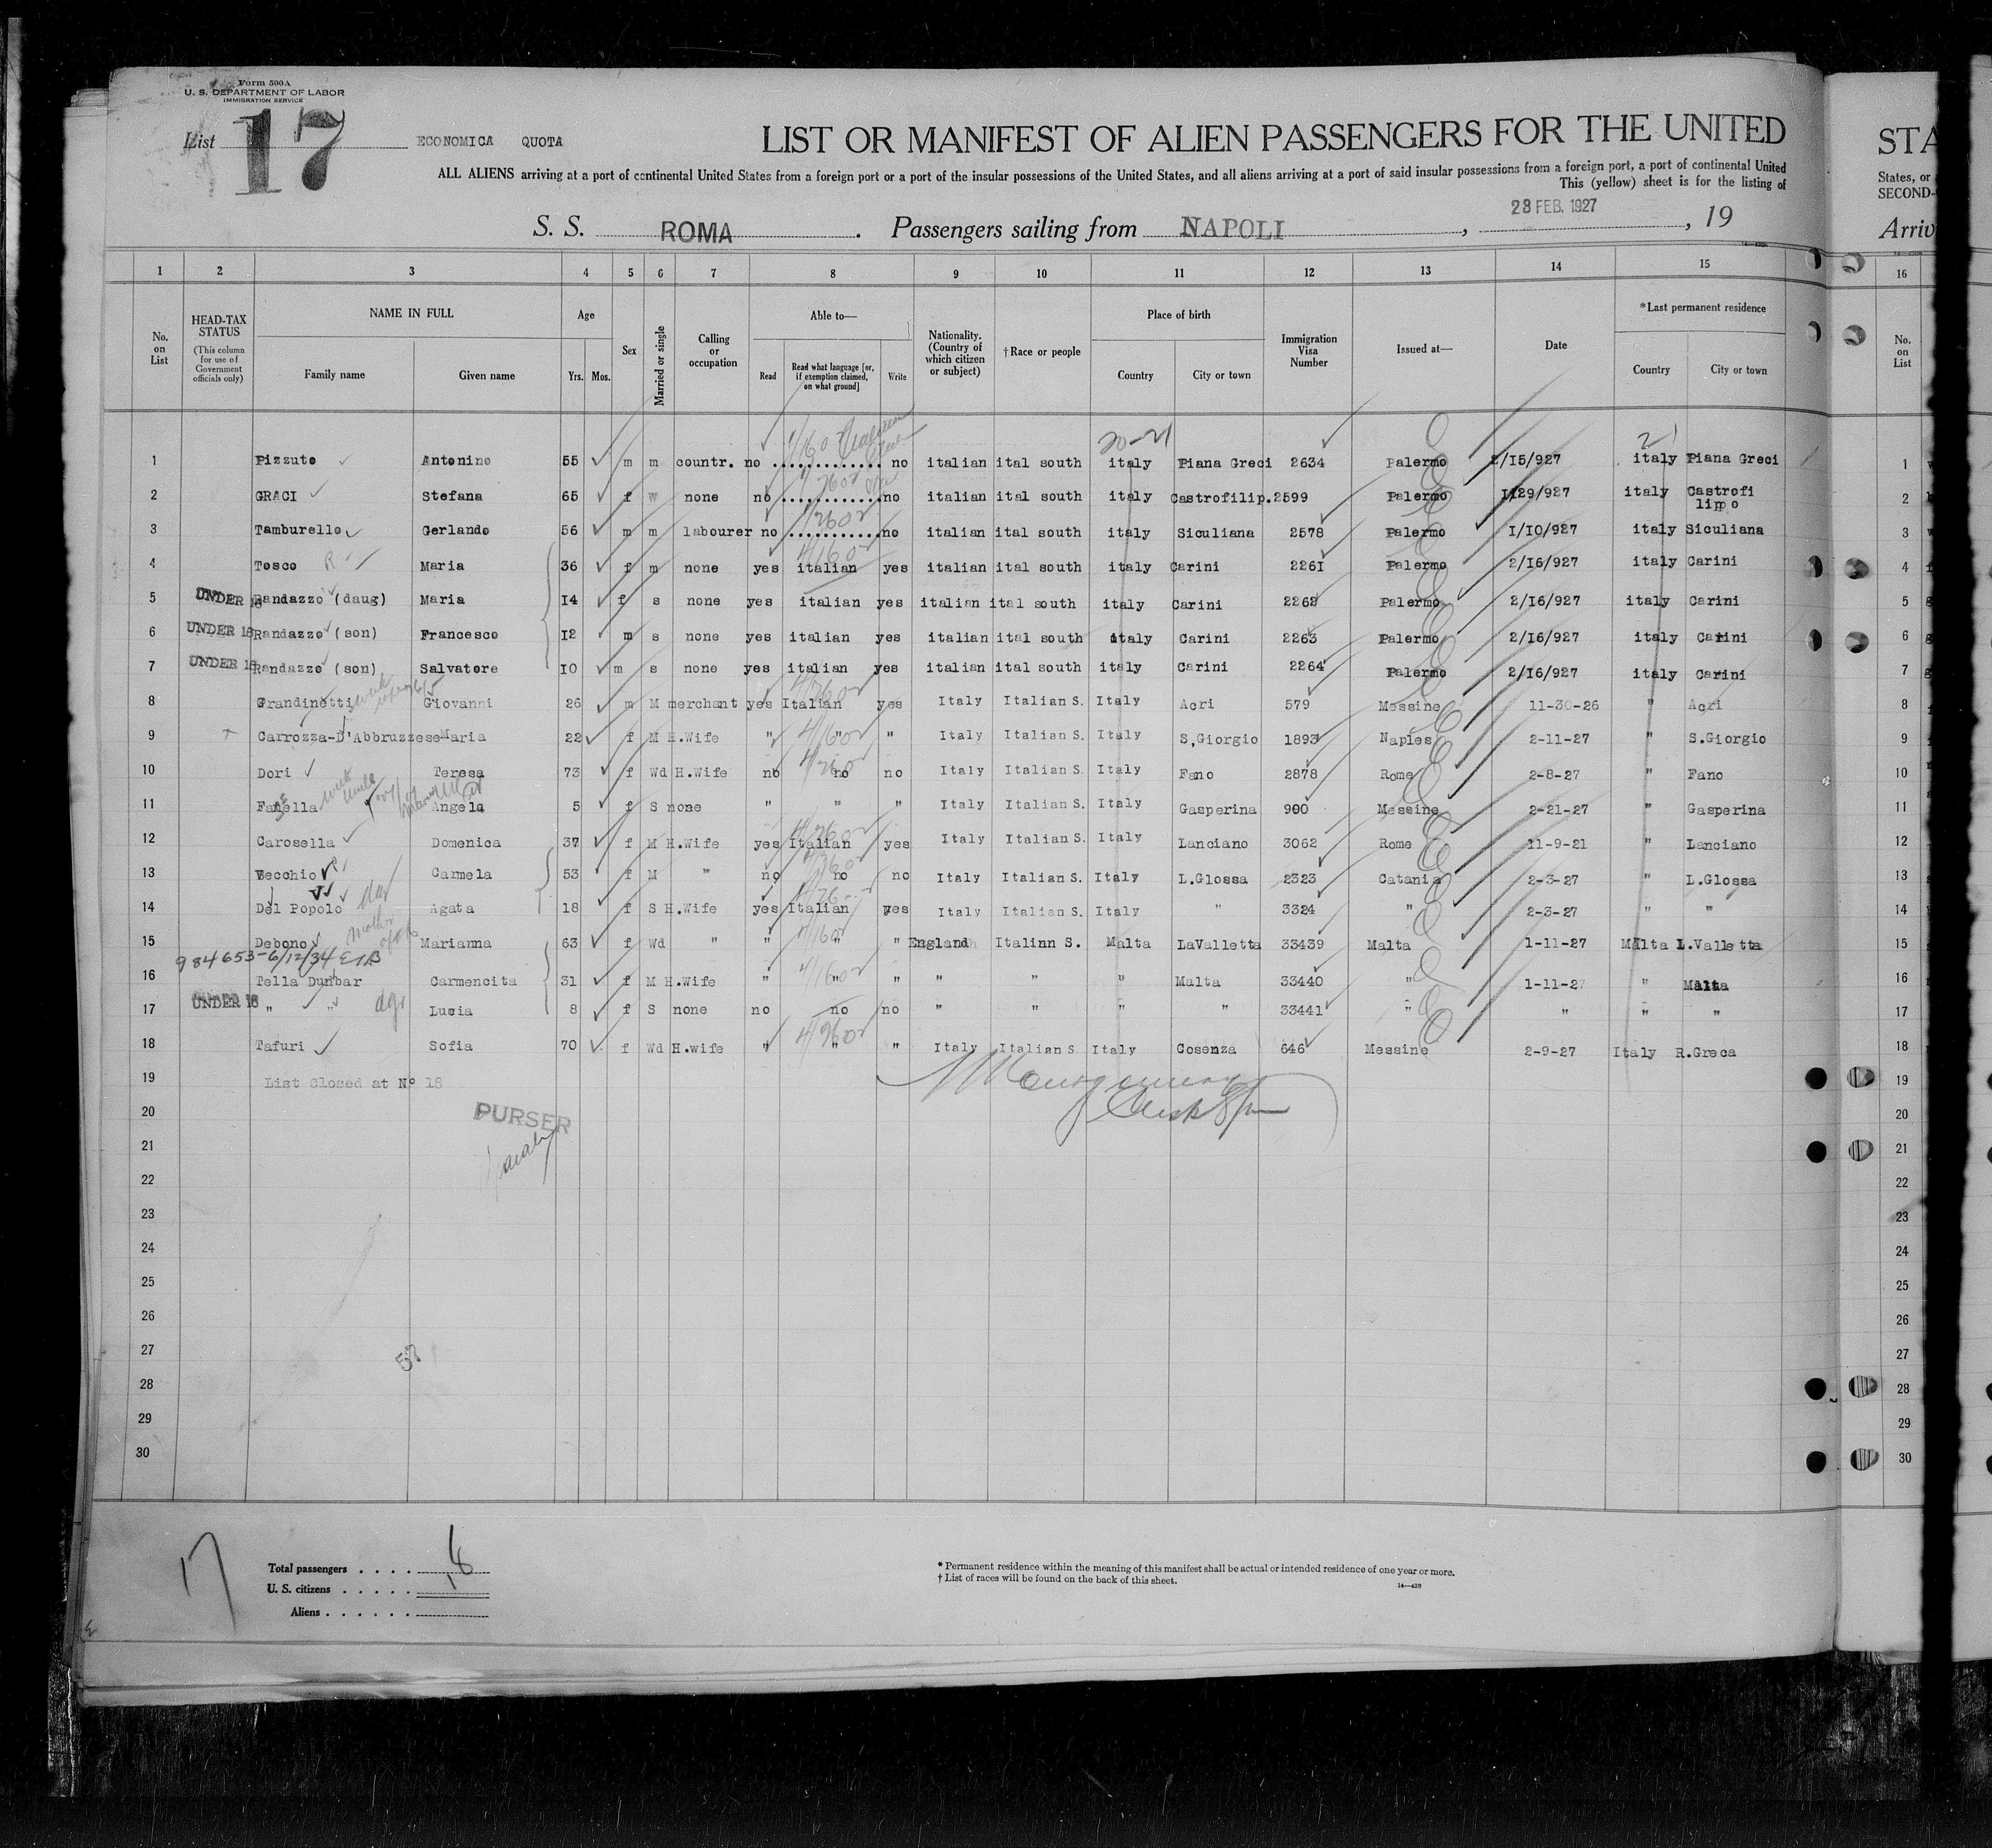 Form 500A
U. S. DEPARTMENT OF LABOR
IMMIGRATION SERVICE
List 17 ECONOMICA QUOTA
LIST OR MANIFEST OF ALIEN PASSENGERS FOR THE UNITED
ALL ALIENS arriving at a port of continental United States from a foreign port or a port of the insular possessions of the United States, and all aliens arriving at a port of said insular possessions from a foreign port, a port of continental United
This (yellow) sheet is for the listing of
S. S. ROMA. Passengers sailing from NAPOLI, 28 FEB. 1927, 19
STA
States, or
SECOND-
Arriv
1 2 3 4 5 6 7 8 9 10 11 12 13 14 15 16
No. on List
HEAD-TAX STATUS (This column for use of Government officials only)
NAME IN FULL
Family name Given name
Age
Yrs. Mos.
Sex
Married or single
Calling or occupation
Able to—
Read
Read what language [or, if exemption claimed, on what ground]
Write
Nationality. (Country of which citizen or subject)
†Race or people
Place of birth
Country City or town
Immigration Visa Number
Issued at—
Date
*Last permanent residence
Country City or town
No. on List
20-21
1 Pizzuto Antonino 55 m m countr. no no italian ital south italy Piana Greci 2634 Palermo 2/15/927 italy Piana Greci 1
2 GRACI Stefana 65 f w none no no italian ital south italy Castrofilip. 2599 Palermo 1/29/927 italy Castrofi lipo 2
3 Tamburello Gerlando 56 m m labourer no no italian ital south italy Siculiana 2578 Palermo 1/10/927 italy Siculiana 3
4 Tosco R Maria 36 f m none yes italian yes italian ital south italy Carini 2261 Palermo 2/16/927 italy Carini 4
5 UNDER 16 Randazzo (daug) Maria 14 f s none yes italian yes italian ital south italy Carini 2262 Palermo 2/16/927 italy Carini 5
6 UNDER 16 Randazzo (son) Francesco 12 m s none yes italian yes italian ital south italy Carini 2263 Palermo 2/16/927 italy Carini 6
7 UNDER 16 Randazzo (son) Salvatore 10 m s none yes italian yes italian ital south italy Carini 2264 Palermo 2/16/927 italy Carini 7
8 Grandinetti Giovanni 26 m M merchant yes Italian yes Italy Italian S. Italy Acri 579 Messine 11-30-26 " Acri 8
9 Carrozza-D'Abbruzzese Maria 22 f M H.Wife " " " Italy Italian S. Italy S,Giorgio 1893 Naples 2-11-27 " S.Giorgio 9
10 Dori Teresa 73 f Wd H.Wife no no no Italy Italian S. Italy Fano 2878 Rome 2-8-27 " Fano 10
11 Fanella Angela 5 f S none " " " Italy Italian S. Italy Gasperina 900 Messine 2-21-27 " Gasperina 11
12 Carosella Domenica 37 f M H.Wife yes Italian yes Italy Italian S. Italy Lanciano 3062 Rome 11-9-21 " Lanciano 12
13 Vecchio Carmela 53 f M " no no no Italy Italian S. Italy L.Glossa 2323 Catania 2-3-27 " L.Glossa 13
14 Del Popolo Agata 18 f S H.Wife yes Italian yes Italy Italian S. Italy " 3324 " 2-3-27 " " 14
15 Debono Marianna 63 f Wd " " " " England Italinn S. Malta LaValletta 33439 Malta 1-11-27 Malta L.Valletta 15
984653-6/12/34
16 Tella Dunbar Carmencita 31 f M H.Wife " " " " " " Malta 33440 " 1-11-27 " Malta 16
17 UNDER 16 " " Lucia 8 f S none no no no " " " " 33441 " " " " 17
18 Tafuri Sofia 70 f Wd H.wife " " " Italy Italian S. Italy Cosenza 646 Messine 2-9-27 Italy R.Greca 18
19 List Closed at No 18 19
PURSER
20 20
21 21
22 22
23 23
24 24
25 25
26 26
27 27
28 28
29 29
30 30
17
Total passengers . . . . 18
U. S. citizens . . . . .
Aliens . . . . . .
* Permanent residence within the meaning of this manifest shall be actual or intended residence of one year or more.
† List of races will be found on the back of this sheet.
14—430